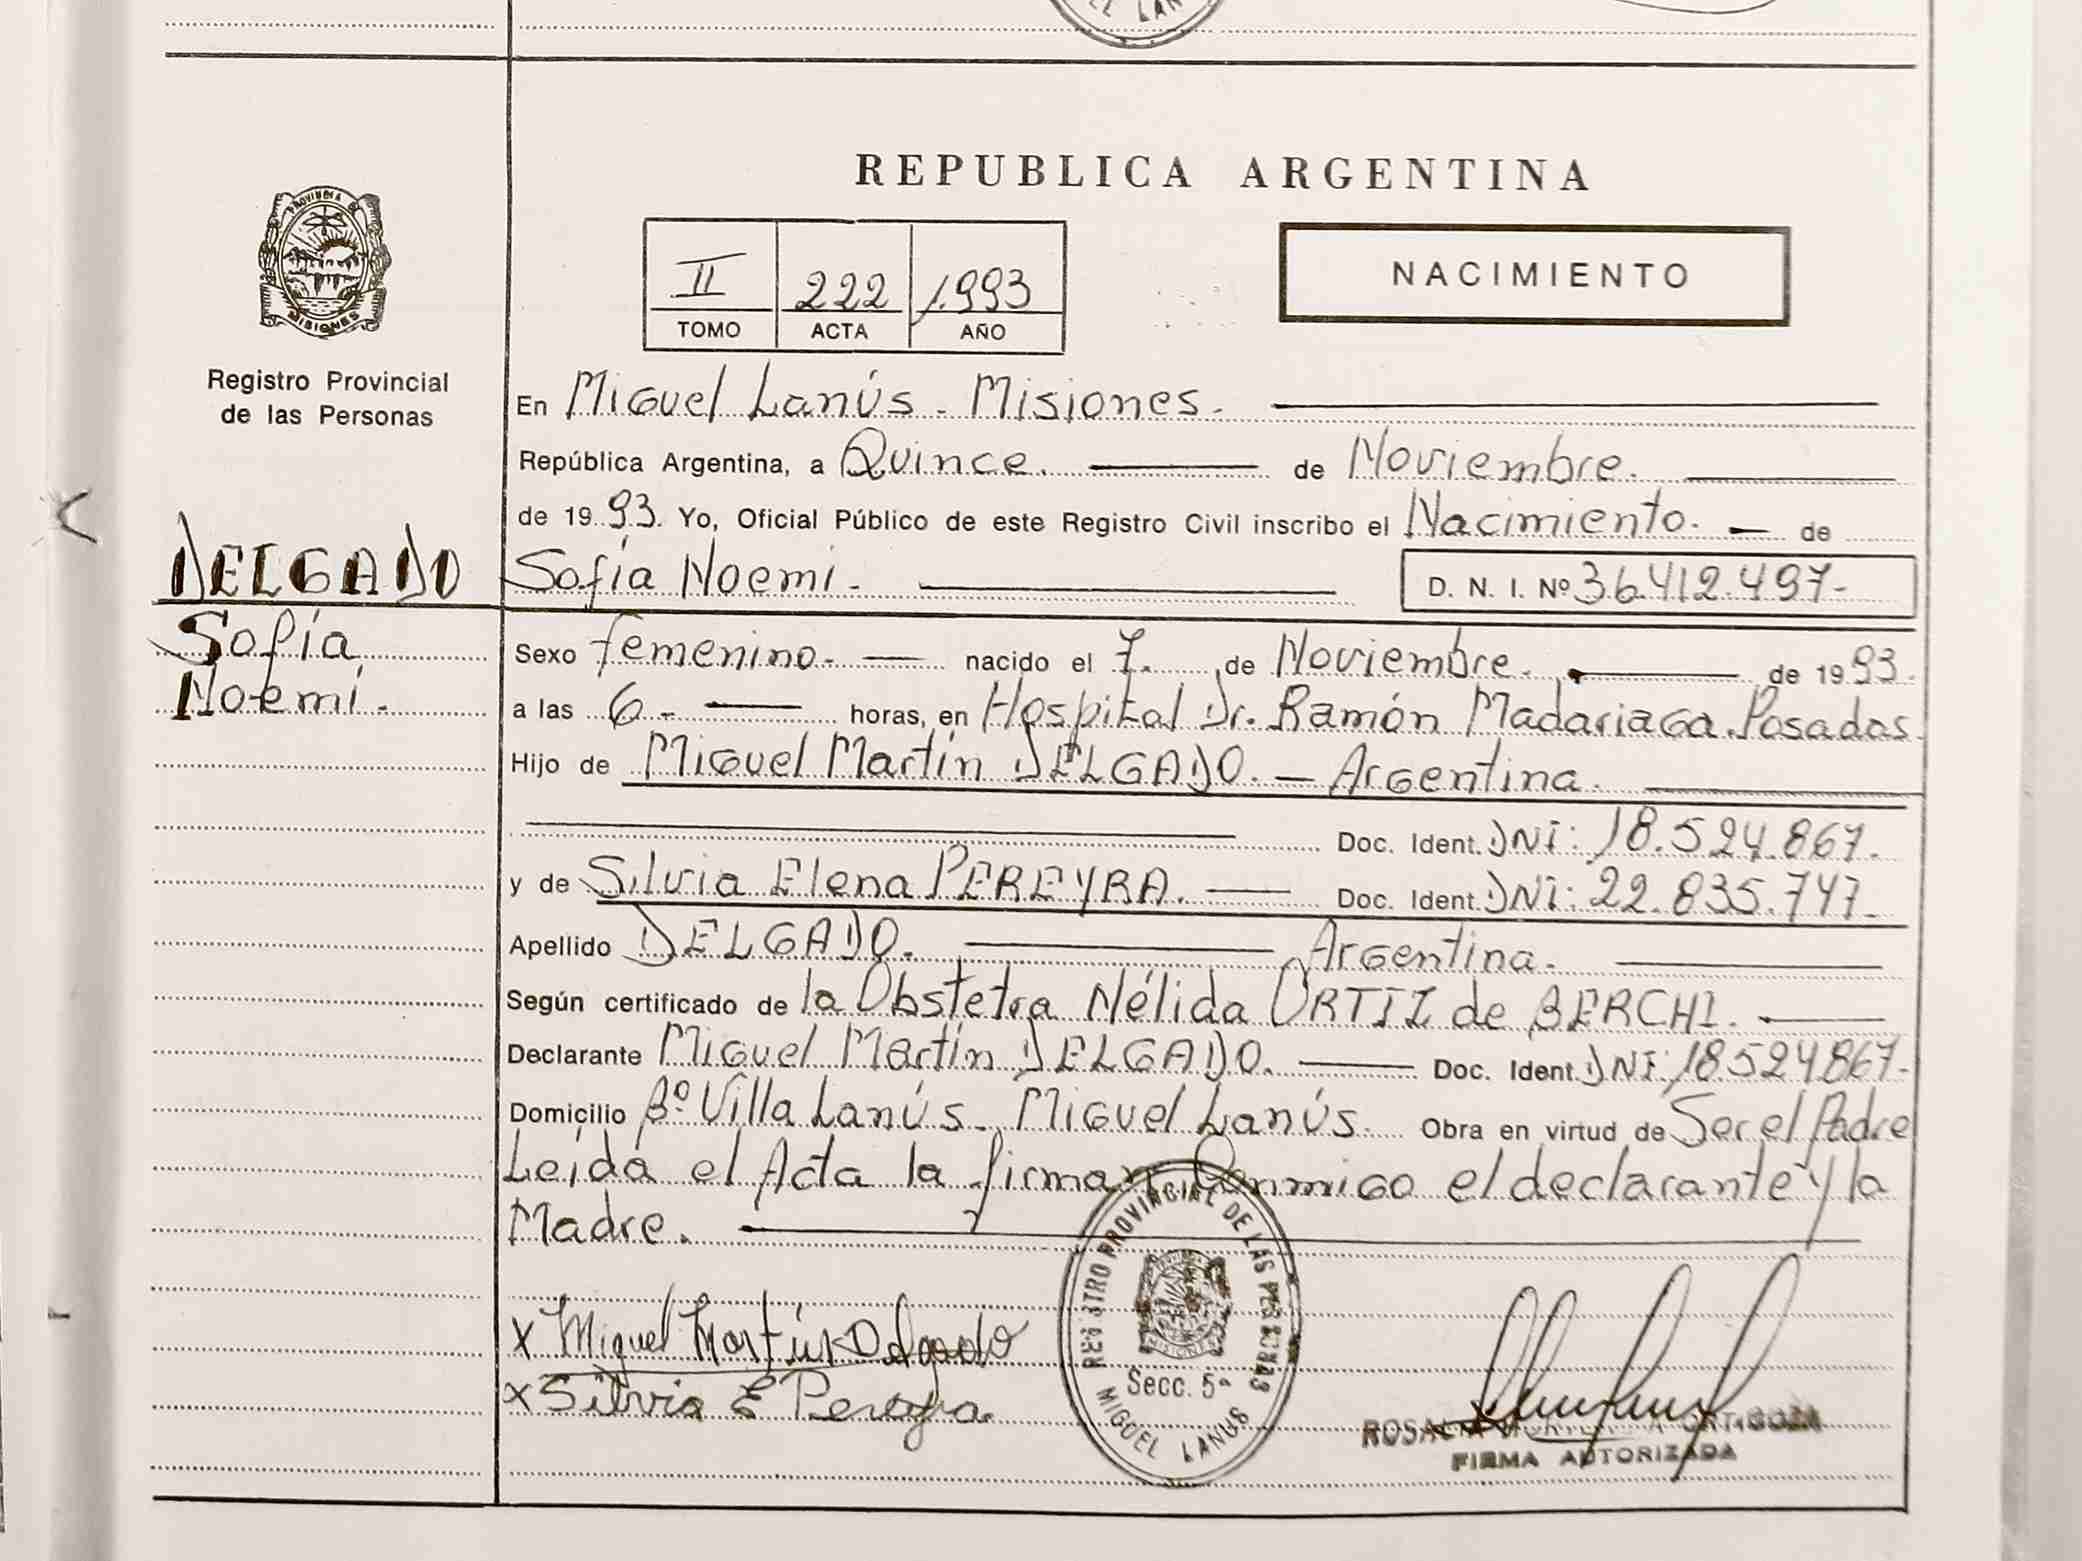 EL LAN
REPUBLICA ARGENTINA
PROVINCIA DE
MISIONES
Registro Provincial
de las Personas
II 222 1993
TOMO ACTA AÑO
NACIMIENTO
En Miguel Lanús. Misiones.
República Argentina, a Quince. de Noviembre.
de 1993. Yo, Oficial Público de este Registro Civil inscribo el Nacimiento. de
DELGADO
Sofía
Noemi.
Sofía Noemi.
D. N. I. Nº 36.412.497-
Sexo femenino. nacido el 7. de Noviembre. de 1993.
a las 6. horas, en Hospital Dr. Ramón Madariaga. Posadas.
Hijo de Miguel Martín DELGADO. Argentina.
Doc. Ident. DNI: 18.524.867.
y de Silvia Elena PEREYRA. Doc. Ident. DNI: 22.835.747.
Apellido DELGADO. Argentina.
Según certificado de la Obstetra Nélida ORTIZ de BERCHI.
Declarante Miguel Martín DELGADO. Doc. Ident. DNI: 18.524867.
Domicilio Bº. Villa Lanús. Miguel Lanús. Obra en virtud de Ser el Padre
Leída el Acta la firman Conmigo el declarante y la
Madre.
x Miguel Martín Delgado
x Silvia E Pereyra
REGISTRO PROVINCIAL DE LAS PERSONAS
Secc. 5ª
MIGUEL LANUS
FIRMA AUTORIZADA